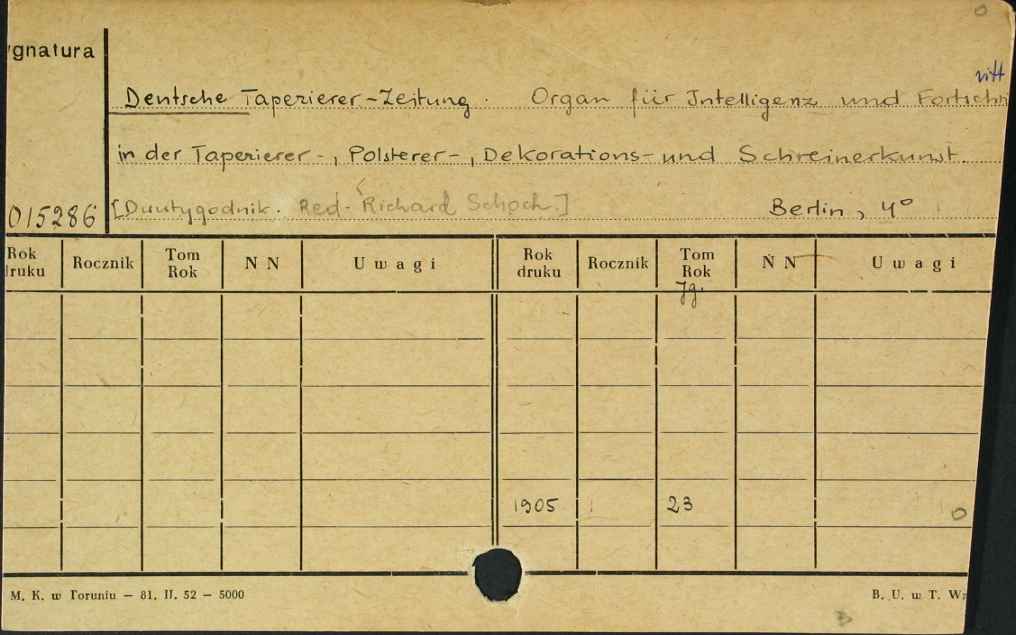 ygnatura
ritt
Deutsche Tapezierer-Zeitung. Organ für Intelligenz und Fortschr
in der Tapezierer-, Polsterer-, Dekorations- und Schreinerkunst.
015286 [Dwutygodnik. Red. Richard Schoch.] Berlin, 4°
Rok druku Rocznik Tom Rok N N Uwagi Rok druku Rocznik Tom Rok N N Uwagi
Jg.
1905 23
M. K. w Toruniu — 81. II. 52 — 5000 B. U. w T. Wz